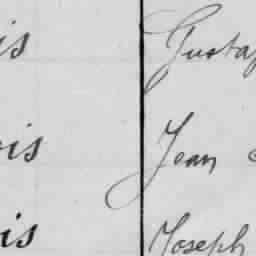 is Gusta
ois Jean
is Joseph